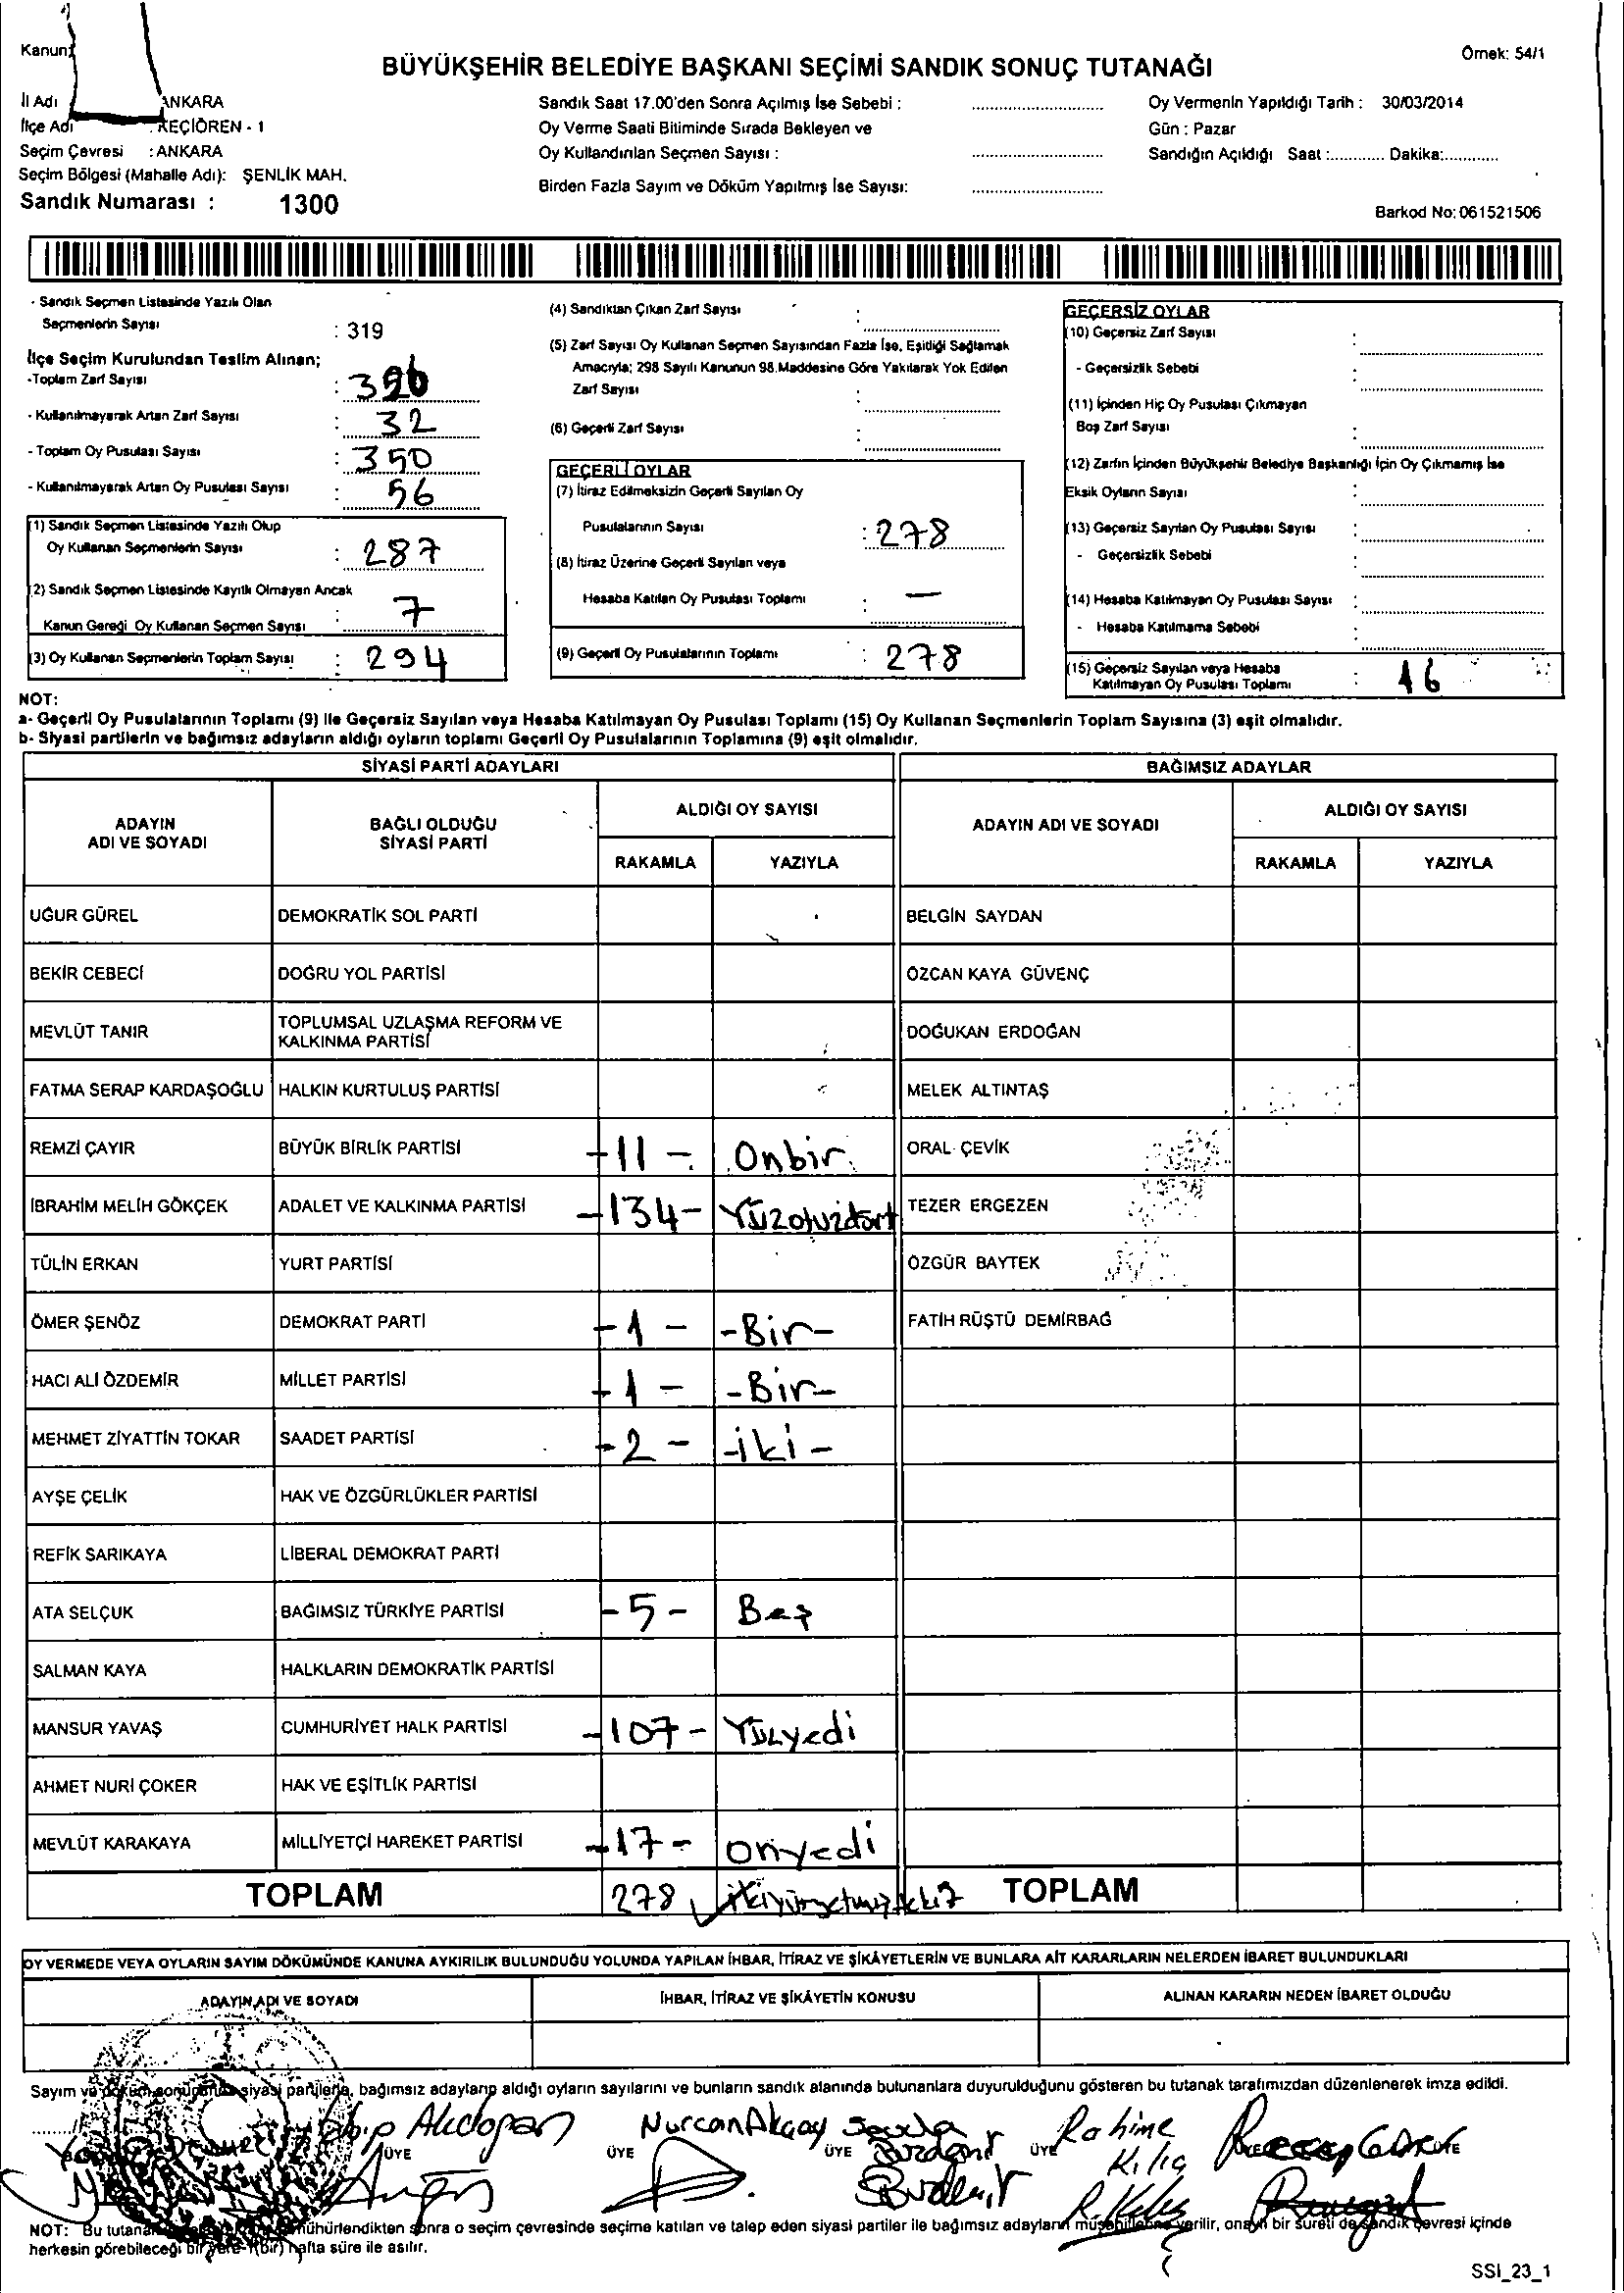 Kanun:
Örnek: 54/1
BÜYÜKŞEHİR BELEDİYE BAŞKANI SEÇİMİ SANDIK SONUÇ TUTANAĞI
İl Adı ANKARA
İlçe Adı : KEÇİÖREN - 1
Seçim Çevresi : ANKARA
Seçim Bölgesi (Mahalle Adı): ŞENLİK MAH.
Sandık Numarası : 1300
Sandık Saat 17.00'den Sonra Açılmış İse Sebebi :
Oy Verme Saati Bitiminde Sırada Bekleyen ve
Oy Kullandırılan Seçmen Sayısı :
Birden Fazla Sayım ve Döküm Yapılmış İse Sayısı:
Oy Vermenin Yapıldığı Tarih : 30/03/2014
Gün : Pazar
Sandığın Açıldığı Saat :............ Dakika:............
Barkod No: 061521506
- Sandık Seçmen Listesinde Yazılı Olan
Seçmenlerin Sayısı : 319
İlçe Seçim Kurulundan Teslim Alınan;
-Toplam Zarf Sayısı : 326
- Kullanılmayarak Artan Zarf Sayısı : 32
- Toplam Oy Pusulası Sayısı : 350
- Kullanılmayarak Artan Oy Pusulası Sayısı : 56
(1) Sandık Seçmen Listesinde Yazılı Olup
Oy Kullanan Seçmenlerin Sayısı : 287
(2) Sandık Seçmen Listesinde Kayıtlı Olmayan Ancak
Kanun Gereği Oy Kullanan Seçmen Sayısı : 7
(3) Oy Kullanan Seçmenlerin Toplam Sayısı : 294
(4) Sandıktan Çıkan Zarf Sayısı :
(5) Zarf Sayısı Oy Kullanan Seçmen Sayısından Fazla İse, Eşitliği Sağlamak
Amacıyla; 298 Sayılı Kanunun 98.Maddesine Göre Yakılarak Yok Edilen
Zarf Sayısı :
(6) Geçerli Zarf Sayısı :
GEÇERLİ OYLAR
(7) İtiraz Edilmeksizin Geçerli Sayılan Oy
Pusulalarının Sayısı : 278
(8) İtiraz Üzerine Geçerli Sayılan veya
Hesaba Katılan Oy Pusulası Toplamı : —
(9) Geçerli Oy Pusulalarının Toplamı : 278
GEÇERSİZ OYLAR
(10) Geçersiz Zarf Sayısı :
- Geçersizlik Sebebi :
(11) İçinden Hiç Oy Pusulası Çıkmayan
Boş Zarf Sayısı :
(12) Zarfın İçinden Büyükşehir Belediye Başkanlığı İçin Oy Çıkmamış İse
Eksik Oyların Sayısı :
(13) Geçersiz Sayılan Oy Pusulası Sayısı :
- Geçersizlik Sebebi :
(14) Hesaba Katılmayan Oy Pusulası Sayısı :
- Hesaba Katılmama Sebebi :
(15) Geçersiz Sayılan veya Hesaba
Katılmayan Oy Pusulası Toplamı : 16
NOT:
a- Geçerli Oy Pusulalarının Toplamı (9) ile Geçersiz Sayılan veya Hesaba Katılmayan Oy Pusulası Toplamı (15) Oy Kullanan Seçmenlerin Toplam Sayısına (3) eşit olmalıdır.
b- Siyasi partilerin ve bağımsız adayların aldığı oyların toplamı Geçerli Oy Pusulalarının Toplamına (9) eşit olmalıdır.
SİYASİ PARTİ ADAYLARI BAĞIMSIZ ADAYLAR
ADAYIN ADI VE SOYADI BAĞLI OLDUĞU SİYASİ PARTİ ALDIĞI OY SAYISI ADAYIN ADI VE SOYADI ALDIĞI OY SAYISI
RAKAMLA YAZIYLA RAKAMLA YAZIYLA
UĞUR GÜREL DEMOKRATİK SOL PARTİ BELGİN SAYDAN
BEKİR CEBECİ DOĞRU YOL PARTİSİ ÖZCAN KAYA GÜVENÇ
MEVLÜT TANIR TOPLUMSAL UZLAŞMA REFORM VE KALKINMA PARTİSİ DOĞUKAN ERDOĞAN
FATMA SERAP KARDAŞOĞLU HALKIN KURTULUŞ PARTİSİ MELEK ALTINTAŞ
REMZİ ÇAYIR BÜYÜK BİRLİK PARTİSİ -11- Onbir ORAL ÇEVİK
İBRAHİM MELİH GÖKÇEK ADALET VE KALKINMA PARTİSİ -134- Yüzotuzdört TEZER ERGEZEN
TÜLİN ERKAN YURT PARTİSİ ÖZGÜR BAYTEK
ÖMER ŞENÖZ DEMOKRAT PARTİ -1- -Bir- FATİH RÜŞTÜ DEMİRBAĞ
HACI ALİ ÖZDEMİR MİLLET PARTİSİ -1- -Bir-
MEHMET ZİYATTİN TOKAR SAADET PARTİSİ -2- -iki-
AYŞE ÇELİK HAK VE ÖZGÜRLÜKLER PARTİSİ
REFİK SARIKAYA LİBERAL DEMOKRAT PARTİ
ATA SELÇUK BAĞIMSIZ TÜRKİYE PARTİSİ -5- Beş
SALMAN KAYA HALKLARIN DEMOKRATİK PARTİSİ
MANSUR YAVAŞ CUMHURİYET HALK PARTİSİ -107- Yüzyedi
AHMET NURİ ÇOKER HAK VE EŞİTLİK PARTİSİ
MEVLÜT KARAKAYA MİLLİYETÇİ HAREKET PARTİSİ -17- onyedi
TOPLAM 278 ikiyüzyetmişsekiz TOPLAM
OY VERMEDE VEYA OYLARIN SAYIM DÖKÜMÜNDE KANUNA AYKIRILIK BULUNDUĞU YOLUNDA YAPILAN İHBAR, İTİRAZ VE ŞİKÂYETLERİN VE BUNLARA AİT KARARLARIN NELERDEN İBARET BULUNDUKLARI
ADAYIN ADI VE SOYADI İHBAR, İTİRAZ VE ŞİKÂYETİN KONUSU ALINAN KARARIN NEDEN İBARET OLDUĞU
Sayım ve döküm sonucunda siyasi partilerle, bağımsız adayların aldığı oyların sayılarını ve bunların sandık alanında bulunanlara duyurulduğunu gösteren bu tutanak tarafımızdan düzenlenerek imza edildi.
Akdoğan Nurcan Akçay Rahime Kılıç
ÜYE ÜYE ÜYE ÜYE ÜYE
NOT: Bu tutanak mühürlendikten sonra o seçim çevresinde seçime katılan ve talep eden siyasi partiler ile bağımsız adayların müşahitlerine verilir, onaylı bir sureti de sandık çevresi içinde
herkesin görebileceği bir yere 1(bir) hafta süre ile asılır.
SSI_23_1